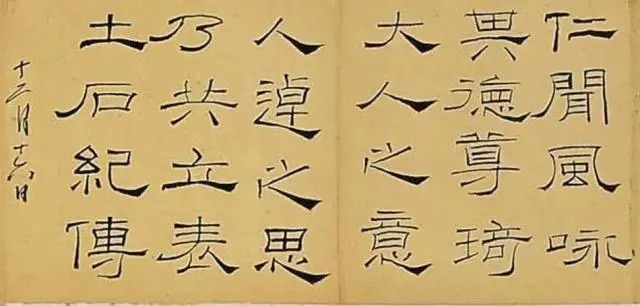 仁聞風咏
其德尊琦
大人之意
人逴之思
乃共立表
土石紀傳
十二月十六日